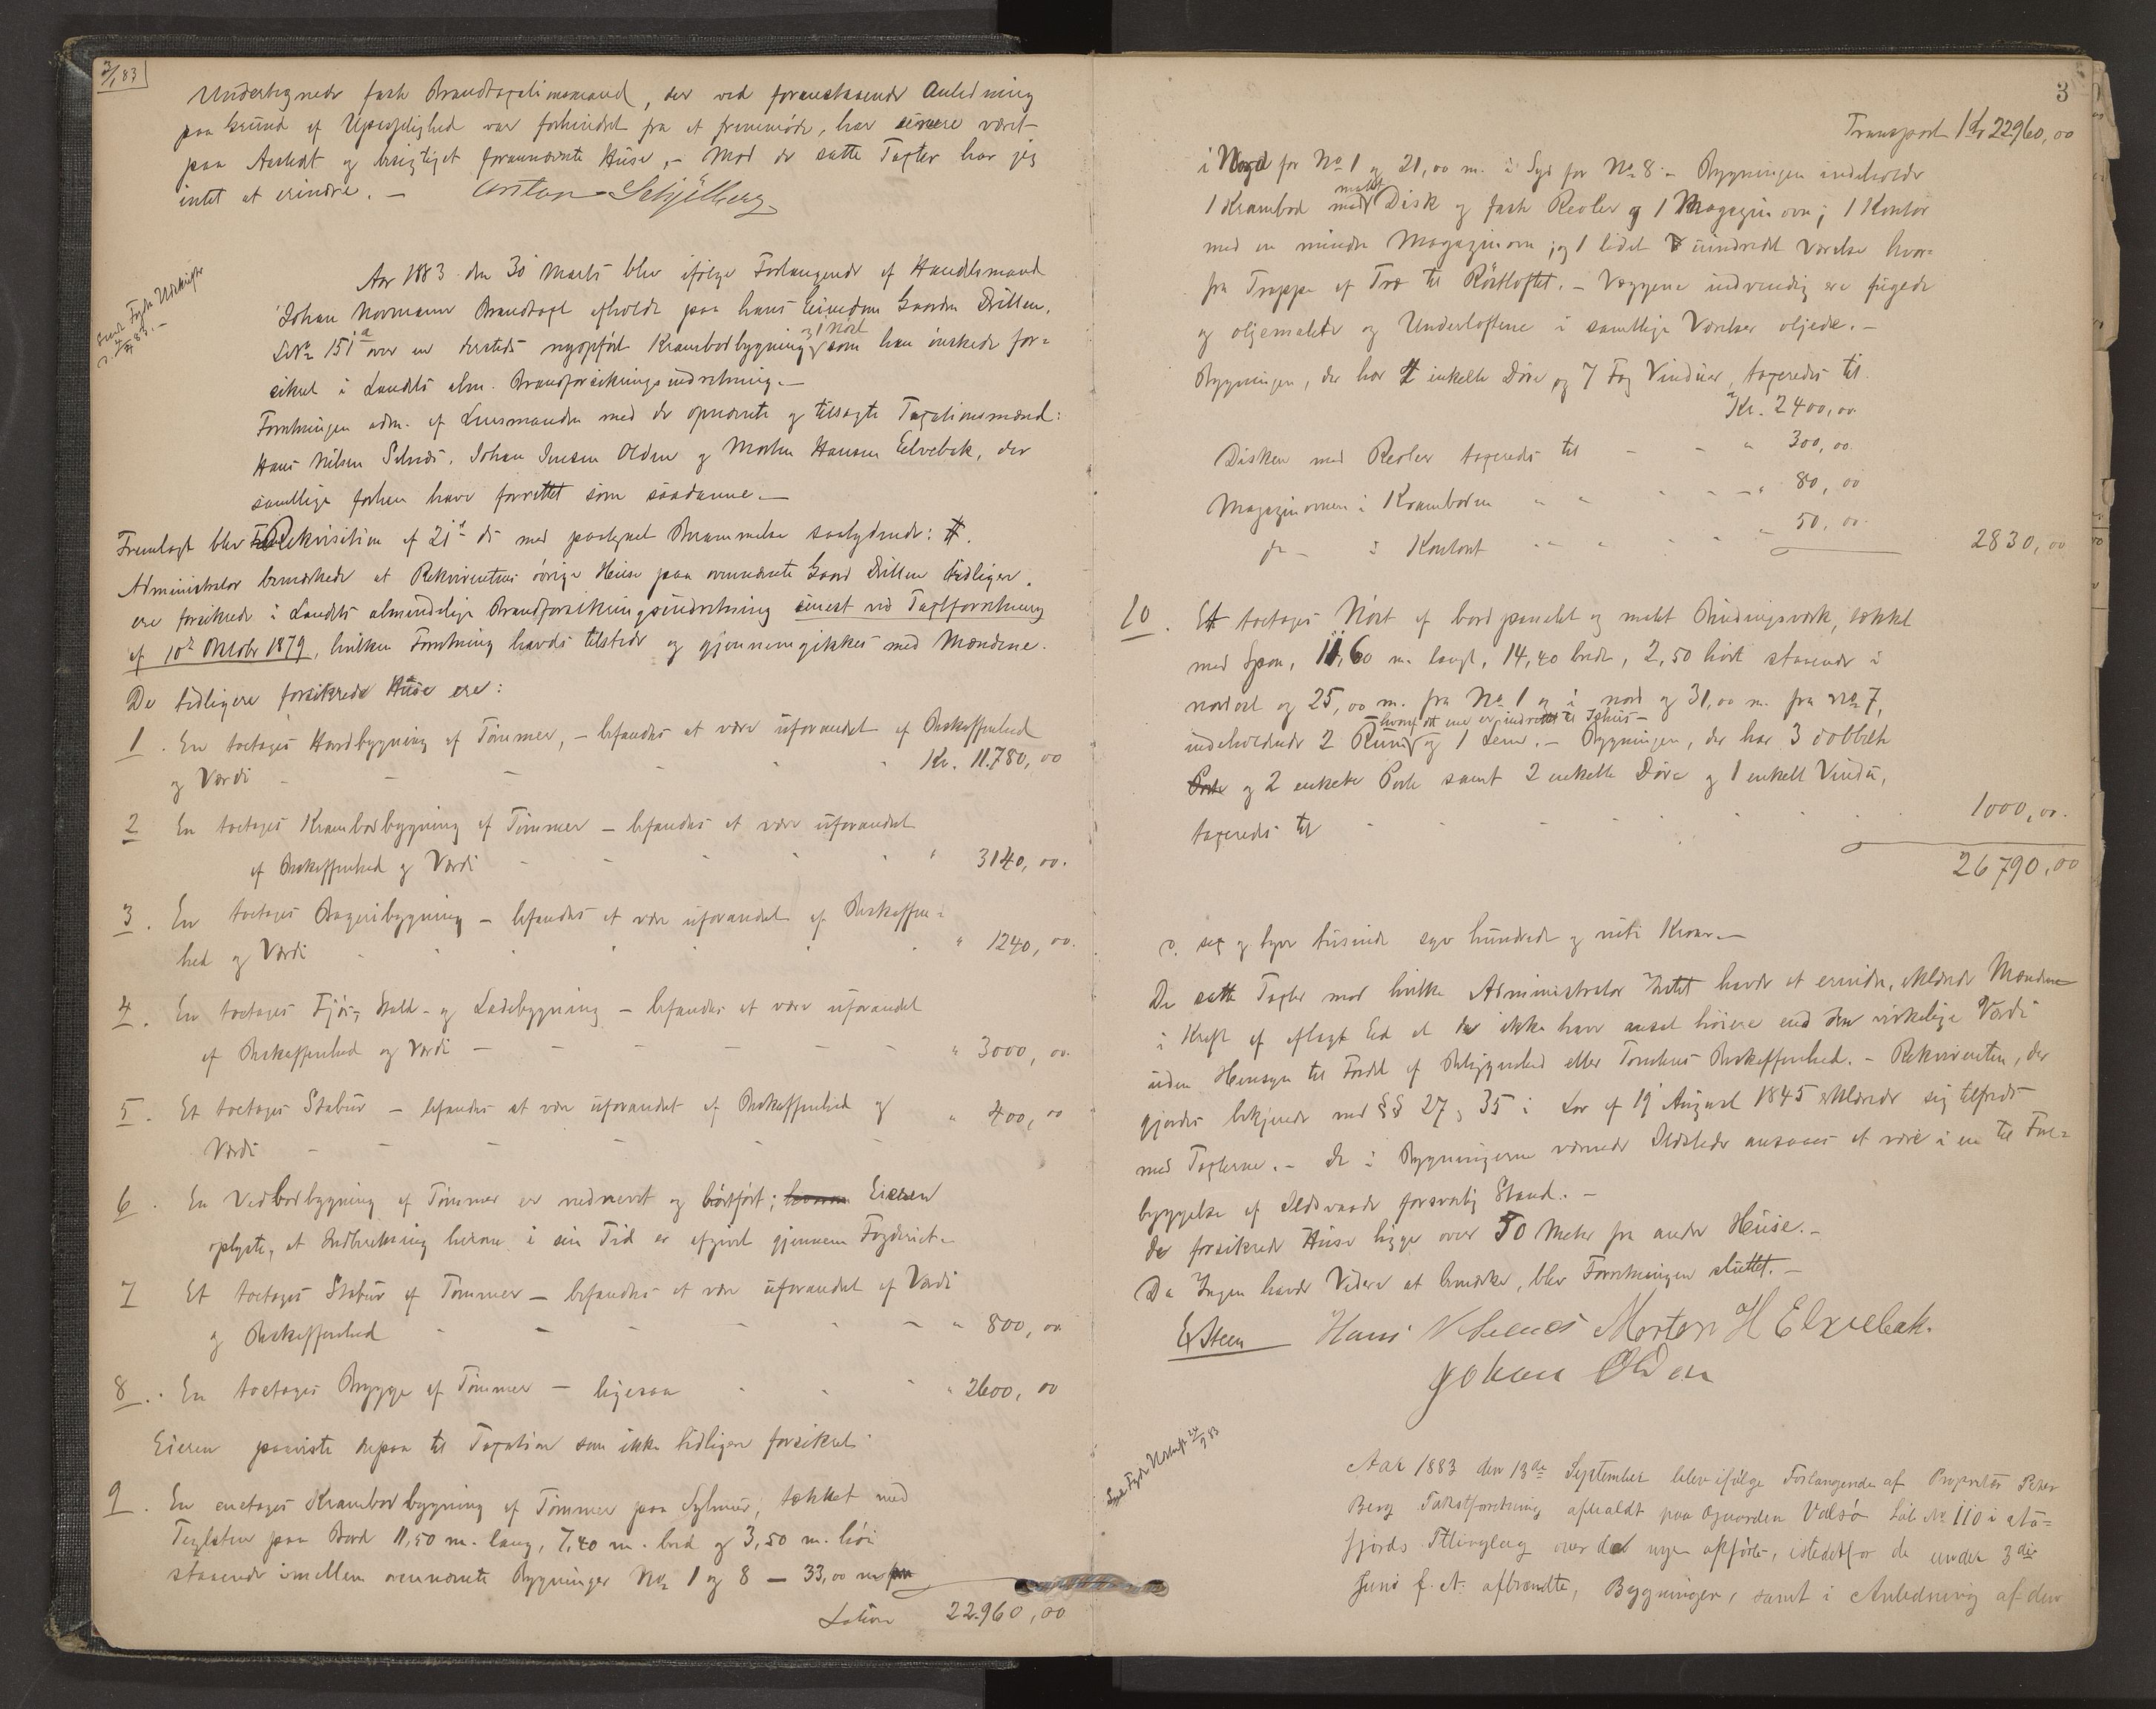 3/1 83
Undertegnede faste Brandtaxationsmand, der ved foranstaaende Anledning
paa Grund af Upasselighed var forhindret fra at fremmøde, har senere været
paa Aastedet og besigtiget forannævnte Huse. – Mod de satte Taxter har jeg
intet at erindre. – Anton Schjelberg
Aar 1883 den 30 Marts blev ifølge Forlangende af Handelsmand
Johan Normann Brandtaxt afholdt paa hans Eiendom Gaarden
LNo 151a over en dersteds nyopført Krambodbygning og 1 Nøst som han ønskede for-
sikret i Landets alm. Brandforsikringsindretning. –
Forretningen adm. af Lensmanden med de opnævnte og tilsagte Taxationsmænd:
Hans Nilsen Selnes, Johan Jensen Olden og Morten Hansen Elvebak, der
samtlige forhen have forrettet som saadanne. –
Fremlagt blev Rekvisition af 21de ds med paategnet Berammelse saalydende: #.
Administrator bemærkede at Rekvirentens øvrige Huse paa ovennævnte Gaard tidligere
ere forsikrede i Landets almindelige Brandforsikringsindretning senest ved Taxtforretning
af 10de Oktober 1879, hvilken Forretning havdes tilstede og gjennemgikkes med Mændene.
De tidligere forsikrede Huse ere:
1. En toetages Hovedbygning af Tømmer, – befandtes at være uforandret af Beskaffenhed
og Værdi - - - - Kr. 11.780,00
2 En toetages Krambodbygning af Tømmer – befandtes at være uforandret
af Beskaffenhed og Værdi - - - - " 3140,00.
3. En toetages Bageribygning – befandtes at være uforandret af Beskaffen-
hed og Værdi - - - - " 1240,00.
4. En toetages Fjøs-, Stald- og Ladebygning – befandtes at være uforandret
af Beskaffenhed og Værdi - - - - " 3000,00.
5. Et toetages Stabur – befandtes at være uforandret af Beskaffenhed og " 400,00
Værdi - - - -
6. En Vedbodbygning af Tømmer er nedrevet og bortført; Eieren
oplyste, at Indberetning herom i sin Tid er afgivet gjennem Fogderiet. –
7 Et toetages Stabur af Tømmer – befandtes at være uforandret af Værdi
og Beskaffenhed - - - - " 800,00
8. En toetages Brygge af Tømmer – ligesaa - - - " 2600,00
Eieren paaviste derpaa til Taxation som ikke tidligere forsikret
9. En enetages Krambodbygning af Tømmer paa Sylmur, tækket med
Teglsten paa Bord 11,50 m. lang, 7,40 m. bred og 3,50 m. høi
staaende imellem ovennævnte Bygninger No 1 og 8 – 33,00 m
Latus 22.960,00
Send. Fogden Udskrift
3
Transport Kr 22960,00
i Nord for No 1 og 21,00 m. i Syd for No 8. – Bygningen indeholder
1 Krambod med malt Disk og faste Reoler og 1 Magazinovn; 1 Kontor
med en mindre Magazinovn; og 1 lidet uindredt Værelse hvor-
fra Trappe af Træ til Røstloftet. – Væggene indvendig ere fugede
og oljemalede og Underloftene i samtlige Værelser oljede. –
Bygningen, der har 2 enkelte Døre og 7 Fag Vinduer, taxeredes til
Kr. 2400,00.
Disken med Reoler taxeredes til - - " 300,00.
Magazinovnen i Kramboden " " - - " 80,00
do - i Kontoret " " - - " 50,00.
2830,00
10. Et toetages Nøst af bordpanelet og malet Bindingsværk, tækket
med Spon, 11,60 m. langt, 14,40 bredt, 2,50 høit staaende i
nordost og 25,00 m. fra No 1 og i nord og 31,00 m. fra No 7,
indeholdende 2 Rum hvoraf det ene er indrettet til Ishus og 1 Lem. – Bygningen, der har 3 dobbelte
Porte og 2 enkelte Porte samt 2 enkelte Døre og 1 enkelt Vindu,
taxeredes til - - - - 1000,00.
26790,00
s. sex og tyve tusinde syv hundrede og niti Kroner. –
De satte Taxter mod hvilke Administrator Intet havde at erindre, erklærede Mændene
i Kraft af aflagt Ed at de ikke have ansat høiere end den virkelige Værdi
uden Hensyn til Fordel af Beliggenhed eller Tomtens Beskaffenhed. – Rekvirenten, der
gjordes bekjendt med §§ 27 og 35 i Lov af 19 August 1845 erklærede sig tilfreds
med Taxterne. – De i Bygningerne værende Ildsteder ansaaes at være i en til Fore-
byggelse af Ildsvaade forsvarlig Stand. –
De forsikrede Huse ligge over 50 Meter fra andre Huse. –
Da Ingen havde Videre at bemærke, blev Forretningen sluttet. –
E Steen Hans N Selnes Morten H Elvebak.
Johan Olden
Send. Fogden Udskrift 24/9 83
Aar 1883 den 13de September blev ifølge Forlangende af Proprietær Peter
Berg Takstforretning afholdt paa Gaarden Valsø Løb. No 110 i Stø-
fjords Thinglag over det nye opførte, istedetfor de under 3die
Juni f. A. afbrændte, Bygninger, samt i Anledning af den